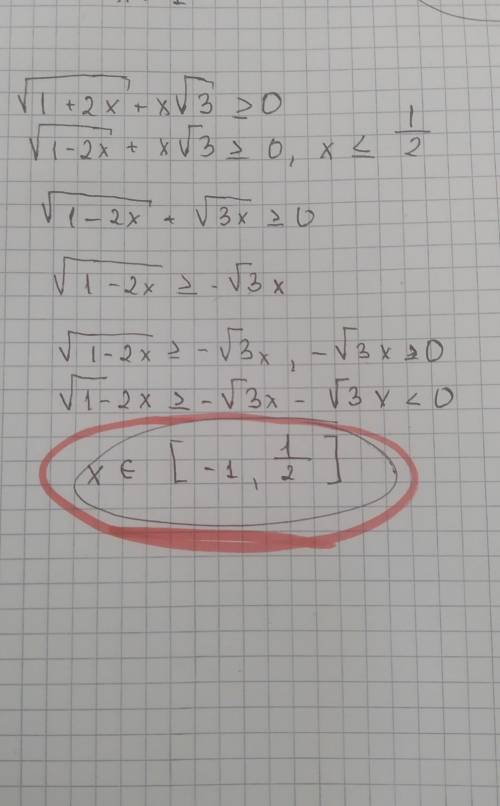 √(1+2x) + x√3 ≥ 0
√(1-2x) + x√3 ≥ 0, x ≤ 1/2
√(1-2x) + √(3x) ≥ 0
√(1-2x) ≥ -√3x
√(1-2x) ≥ -√3x, -√3x ≥ 0
√1-2x ≥ -√3x - √3x < 0
x ∈ [-1, 1/2]